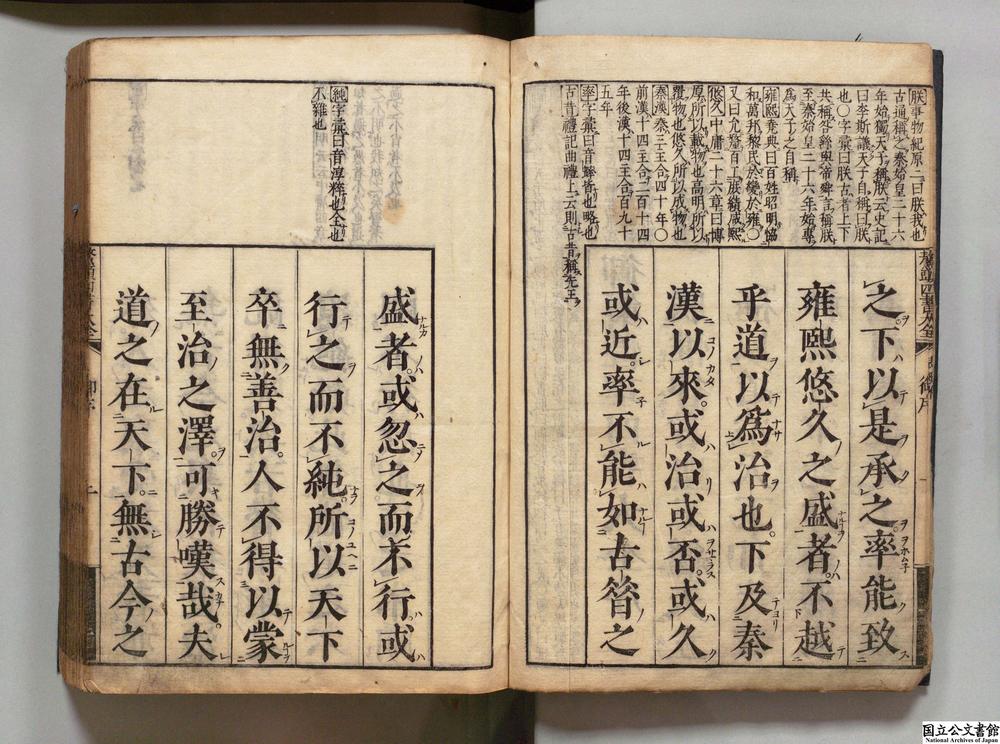 朕事物紀原二曰朕我也
古通稱之秦始皇二十六
年始獨天子稱朕云史記
曰李斯議天子自稱曰朕
也〇字彙曰朕古者上下
共稱咎繇與帝舜言稱朕
至秦始皇二十六年始專
為天子之自稱
雍熙堯典曰百姓昭明協
和萬邦黎民於變於雍〇
又曰允釐百工庶績咸熙
悠久中庸二十六章曰博
厚所以載物也高明所以
覆物也悠久所以成物也
秦漢秦三王合四十年〇
前漢十四主合二百十四
年後漢十四主合百九十
五年
率字彙曰音蟀皆也略也
古昔禮記曲禮上云則古昔稱先王
之下以是承之率能致
雍熙悠久之盛者不越
乎道以為治也下及秦
漢以來或治或否或久
或近率不能如古昔之
純字彙曰音淳粹也全也
不雜也
盛者或忽之而不行或
行之而不純所以天下
卒無善治人不得以蒙
至治之澤可勝嘆哉夫
道之在天下無古今之
國立公文書館
National Archives of Japan